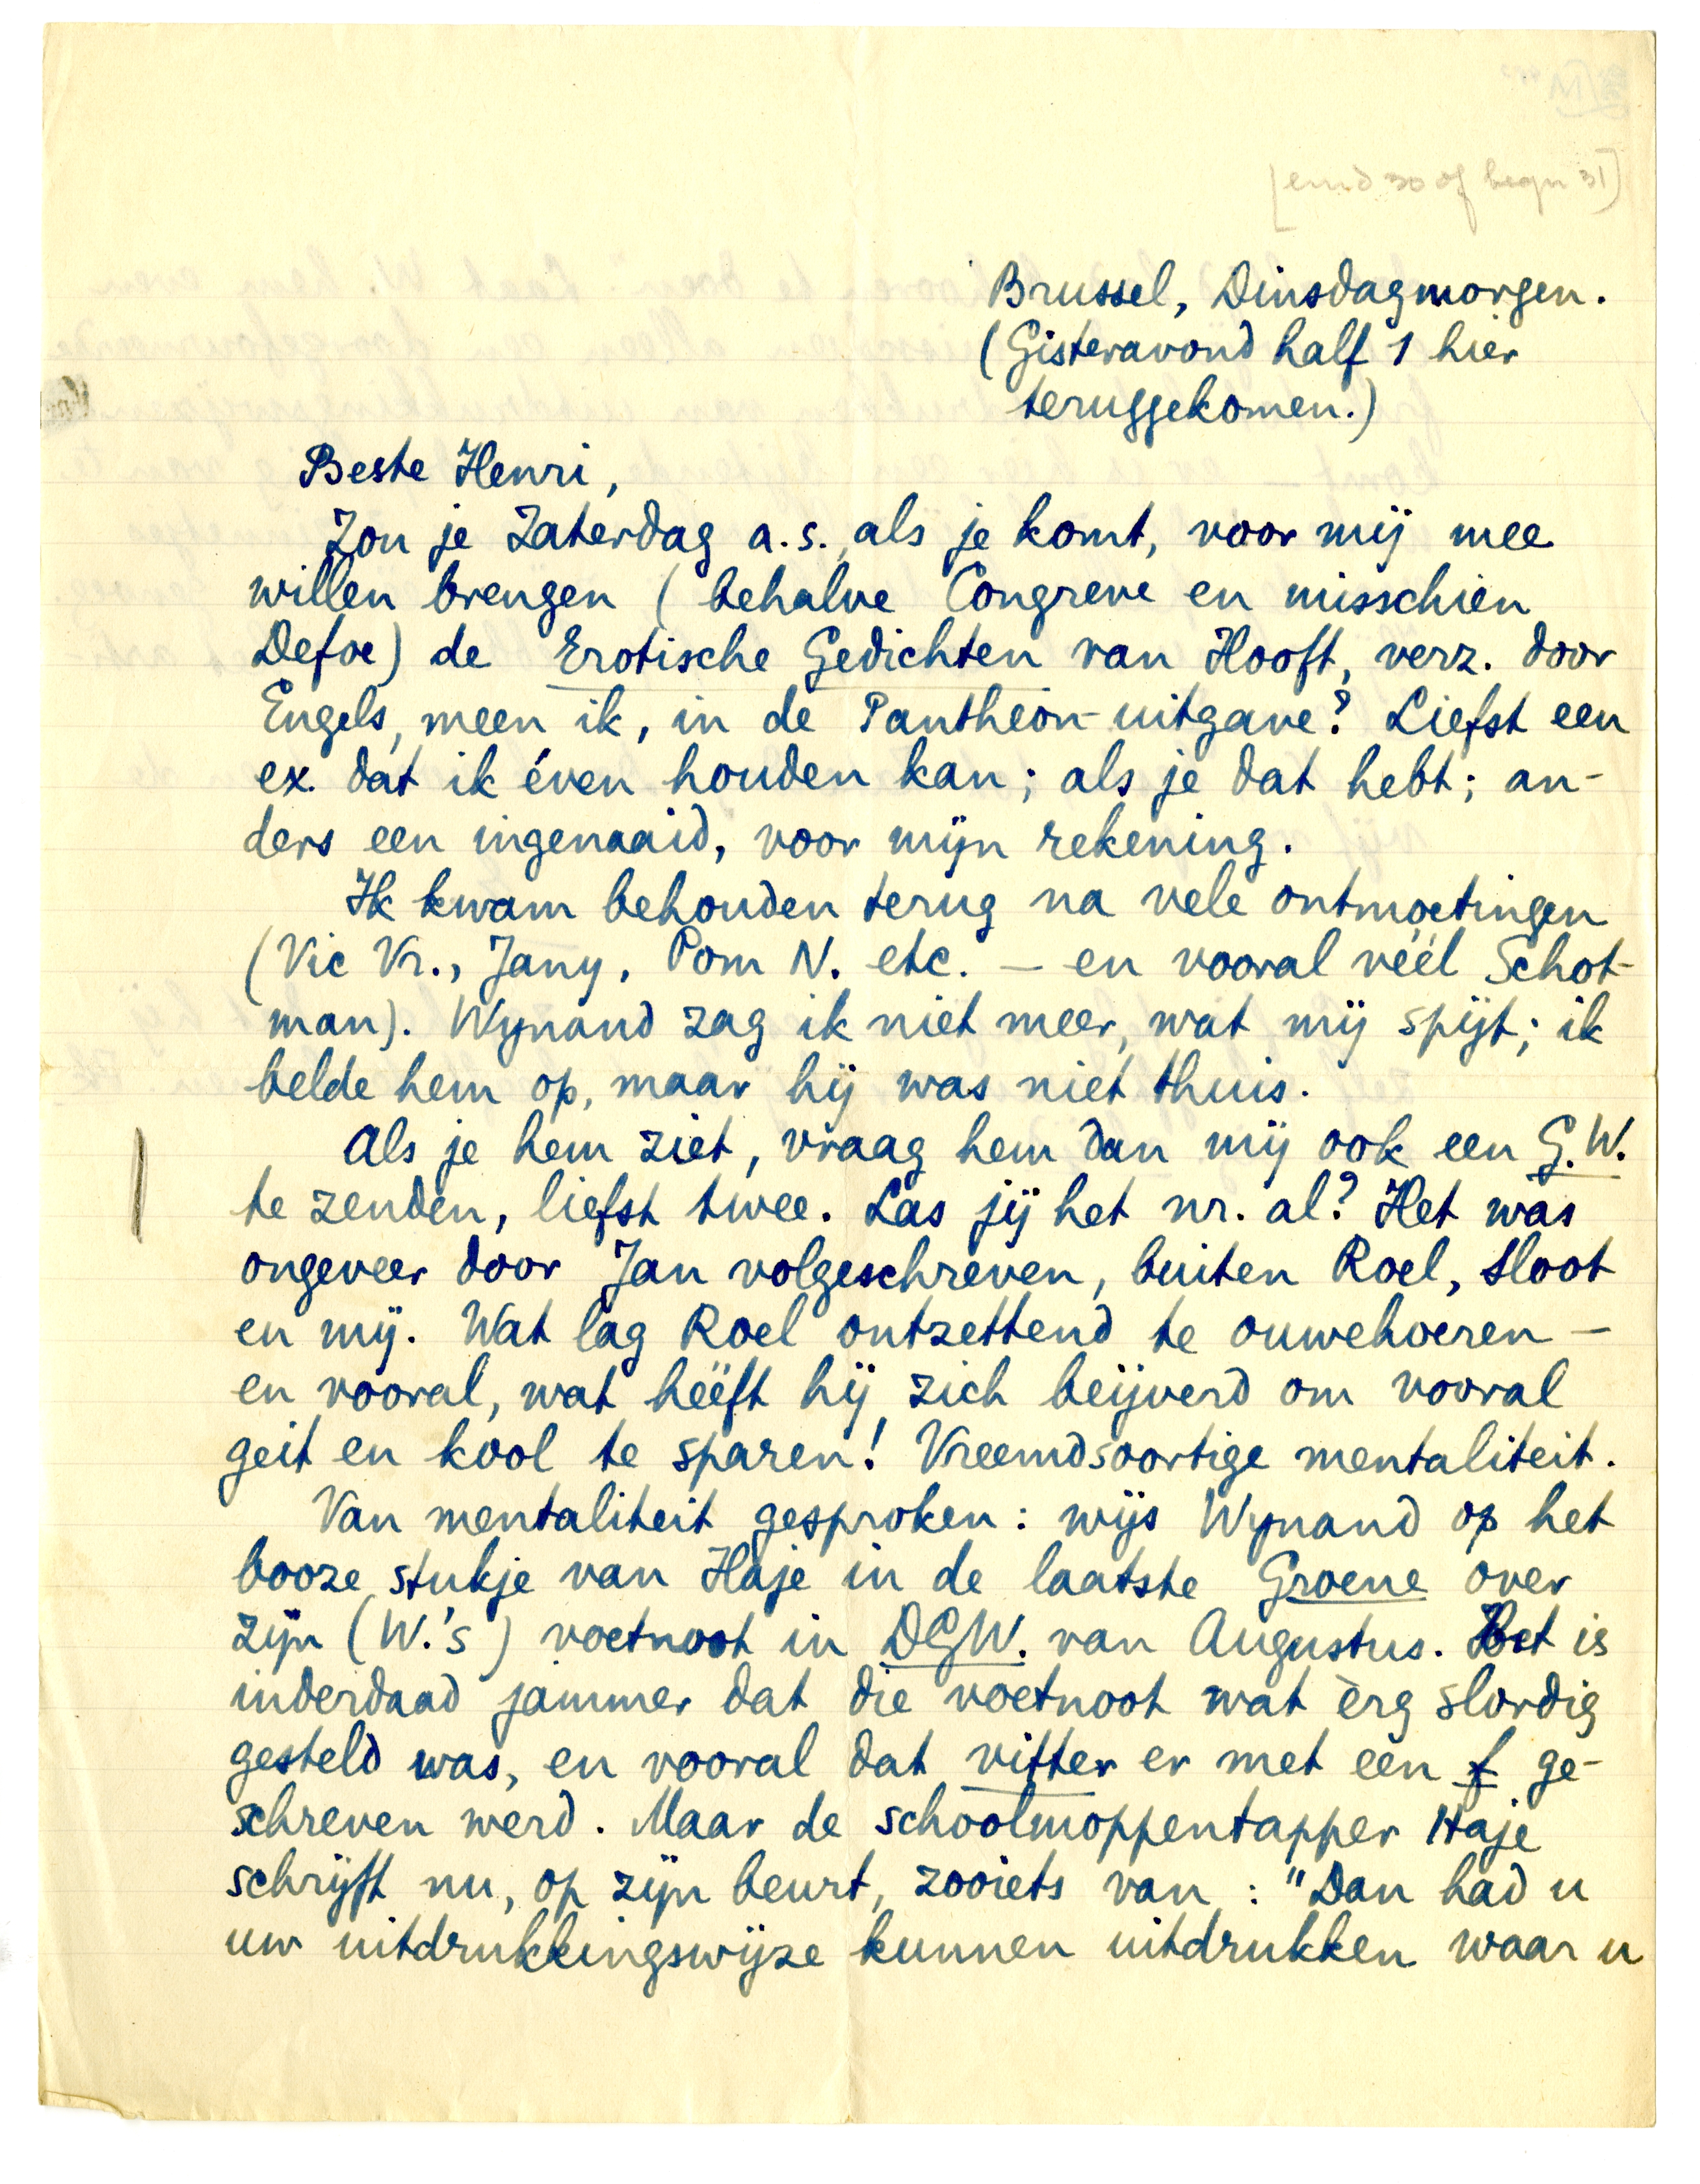 [eind 30 of begin 31]
Brussel, Dinsdagmorgen.
(Gisteravond half 1 hier
teruggekomen.)
Beste Henri,
Zou je Zaterdag a.s., als je komt, voor mij mee
willen brengen (behalve Congreve en misschien
Defoe) de Erotische Gedichten van Hooft, verz. door
Engels, meen ik, in de Pantheon-uitgave? Liefst een
ex. dat ik éven houden kan; als je dat hebt; an-
ders een ingenaaid, voor mijn rekening.
Ik kwam behouden terug na vele ontmoetingen
(Vic Vr., Jany, Pom N. etc. — en vooral véél Schot-
man). Wynand zag ik niet meer, wat mij spijt; ik
belde hem op, maar hij was niet thuis.
Als je hem ziet, vraag hem dan mij ook een G.W.
te zenden, liefst twee. Las jij het nr. al? Het was
ongeveer door Jan volgeschreven, buiten Roel, Sloot
en mij. Wat lag Roel ontzettend te ouwehoeren —
en vooral, wat hééft hij zich beijverd om vooral
geit en kool te sparen! Vreemdsoortige mentaliteit.
Van mentaliteit gesproken: wijs Wynand op het
booze stukje van Haje in de laatste Groene over
zijn (W.'s) voetnoot in DGW. van Augustus. Het is
inderdaad jammer dat die voetnoot wat èrg slordig
gesteld was, en vooral dat vitter er met een f ge-
schreven werd. Maar de schoolmoppentapper Haje
schrijft nu, op zijn beurt, zooiets van: "Dan had u
uw uitdrukkingswijze kunnen uitdrukken waar u